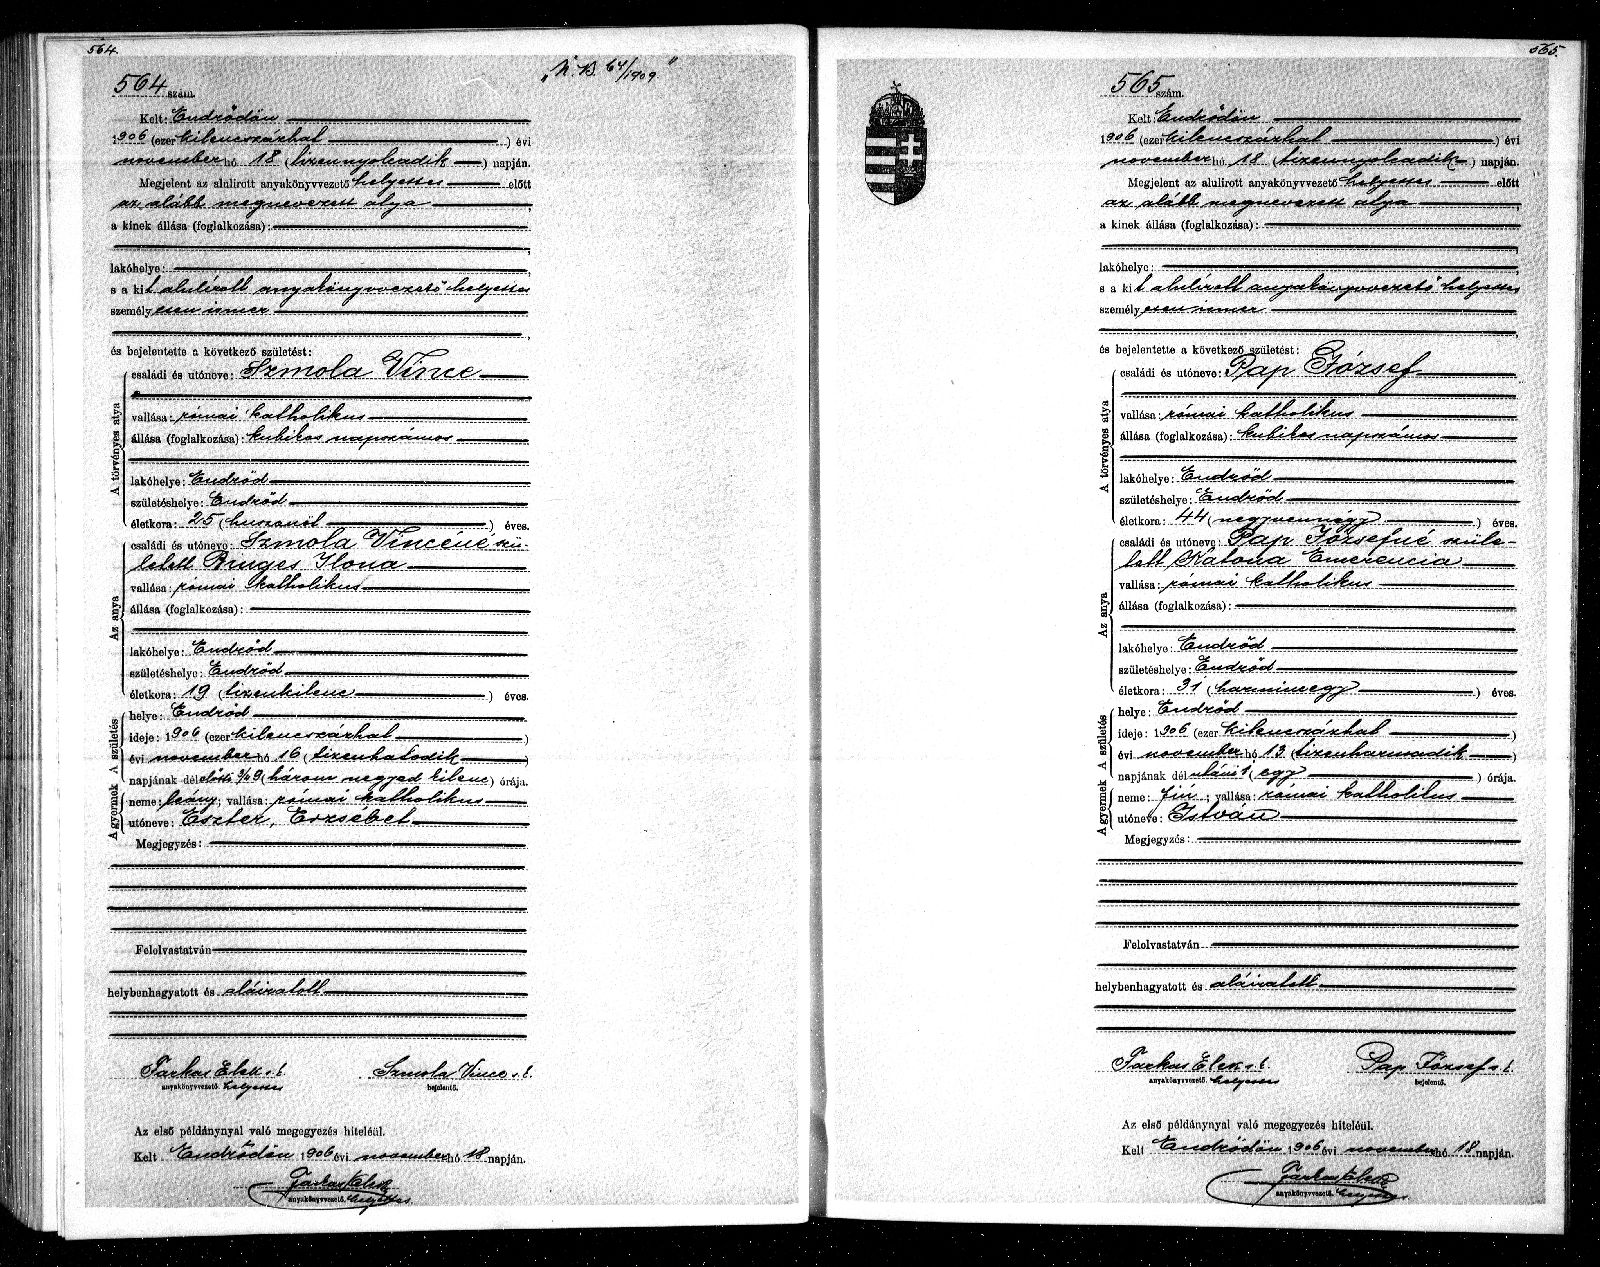 564.
"N. B. 64/1909"
564 szám.
Kelt: Endrődön
1906 (ezer kilencszázhat) évi
november hó 18 (tizennyolcadik) napján.
Megjelent az alulirott anyakönyvvezető helyettes előtt
az alább megnevezett atya,
a kinek állása (foglalkozása):
lakóhelye:
s a kit alulírott anyakönyvvezető helyettes
személyesen ismer
és bejelentette a következő születést:
A törvényes atya
családi és utóneve: Szmola Vince
vallása: római katholikus
állása (foglalkozása): kubikos napszámos
lakóhelye: Endrőd
születéshelye: Endrőd
életkora: 25 (huszonöt) éves.
Az anya
családi és utóneve: Szmola Vincéné szü-
letett Bruges Ilona
vallása: római katholikus
állása (foglalkozása):
lakóhelye: Endrőd
születéshelye: Endrőd
életkora: 19 (tizenkilenc) éves.
A születés
helye: Endrőd
ideje: 1906 (ezer kilencszázhat)
évi november hó 16 (tizenhatodik)
napjának délelőtti 3/4 9 (három negyed kilenc) órája.
A gyermek
neme: leány; vallása: római katholikus
utóneve: Eszter, Erzsébet
Megjegyzés:
Felolvastatván
helybenhagyatott és aláiratott
Farkas Elek s. k. Szmola Vince s. k.
anyakönyvvezető. helyettes bejelentő.
Az első példánynyal való megegyezés hiteléül.
Kelt Endrődön 1906 évi november hó 18 napján.
Farkas Elek
anyakönyvvezető. helyettes
565.
565 szám.
Kelt: Endrődön
1906 (ezer kilencszázhat) évi
november hó 18 (tizennyolcadik) napján.
Megjelent az alulirott anyakönyvvezető helyettes előtt
az alább megnevezett atya,
a kinek állása (foglalkozása):
lakóhelye:
s a kit alulírott anyakönyvvezető helyettes
személyesen ismer
és bejelentette a következő születést:
A törvényes atya
családi és utóneve: Pap József
vallása: római katholikus
állása (foglalkozása): kubikos napszámos
lakóhelye: Endrőd
születéshelye: Endrőd
életkora: 44 (negyvennégy) éves.
Az anya
családi és utóneve: Pap Józsefné szüle-
tett Katona Emerencia
vallása: római katholikus
állása (foglalkozása):
lakóhelye: Endrőd
születéshelye: Endrőd
életkora: 31 (harmincegy) éves.
A születés
helye: Endrőd
ideje: 1906 (ezer kilencszázhat)
évi november hó 13 (tizenharmadik)
napjának délutáni 1 (egy) órája.
A gyermek
neme: fiú; vallása: római katholikus
utóneve: István
Megjegyzés:
Felolvastatván
helybenhagyatott és aláiratott
Farkas Elek s. k. Pap József s. k.
anyakönyvvezető. helyettes bejelentő.
Az első példánynyal való megegyezés hiteléül.
Kelt Endrődön 1906 évi november hó 18 napján.
Farkas Elek
anyakönyvvezető. helyettes